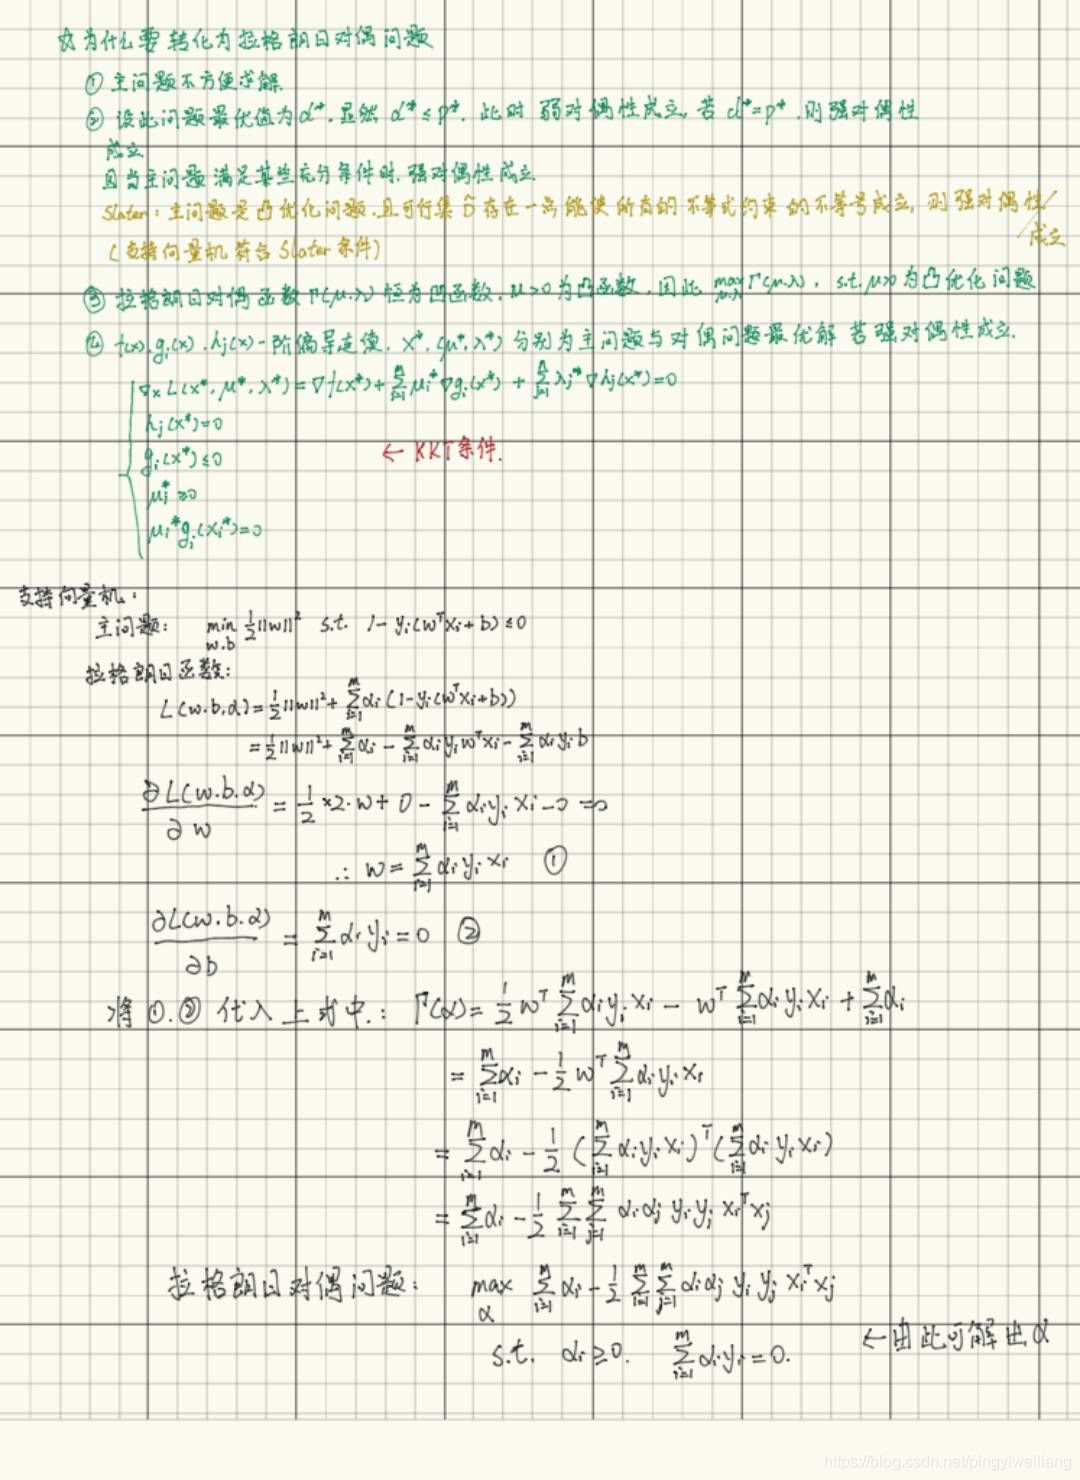 ☆为什么要转化为拉格朗日对偶问题
① 主问题不方便求解.
② 设此问题最优值为d*. 显然 d*≤p*. 此时 弱对偶性成立, 若 d*=p*. 则强对偶性
成立.
且当主问题 满足某些充分条件时. 强对偶性成立.
Slater: 主问题是凸优化问题. 且可行集 D̃ 存在一点能使所有的不等式约束的不等号成立, 则强对偶性
成立
(支持向量机 符合 Slater 条件)
③ 拉格朗日对偶函数 Γ(μ.λ) 恒为凹函数. μ>0为凸函数. 因此 max Γ(μ.λ), s.t. μ≥0 为凸优化问题
μ.λ
④ f(x).gᵢ(x).hⱼ(x)一阶偏导连续. x*. (μ*,λ*) 分别为主问题与对偶问题最优解 若强对偶性成立.
∇ₓL(x*,μ*,λ*)=∇f(x*)+∑μᵢ*∇gᵢ(x*)+∑λⱼ*∇hⱼ(x*)=0
hⱼ(x*)=0
← KKT条件.
gᵢ(x*)≤0
μᵢ*≥0
μᵢ*gᵢ(xᵢ*)=0
支持向量机:
主问题: min 1/2||w||² s.t. 1-yᵢ(wᵀxᵢ+b)≤0
w.b
拉格朗日函数:
L(w.b.α)=1/2||w||²+∑ᵢ₌₁ᵐ αᵢ(1-yᵢ(wᵀxᵢ+b))
=1/2||w||²+∑ᵢ₌₁ᵐ αᵢ-∑ᵢ₌₁ᵐ αᵢyᵢwᵀxᵢ-∑ᵢ₌₁ᵐ αᵢyᵢb
∂L(w.b.α)/∂w = 1/2×2·w+0-∑ᵢ₌₁ᵐ αᵢyᵢxᵢ-0=0
∴ w=∑ᵢ₌₁ᵐ αᵢyᵢxᵢ ①
∂L(w.b.α)/∂b = ∑ᵢ₌₁ᵐ αᵢyᵢ=0 ②
将①.②代入上式中.: Γ(α)=1/2wᵀ∑ᵢ₌₁ᵐ αᵢyᵢxᵢ-wᵀ∑ᵢ₌₁ᵐ αᵢyᵢxᵢ+∑ᵢ₌₁ᵐ αᵢ
=∑ᵢ₌₁ᵐ αᵢ-1/2wᵀ∑ᵢ₌₁ᵐ αᵢyᵢxᵢ
=∑ᵢ₌₁ᵐ αᵢ-1/2(∑ᵢ₌₁ᵐ αᵢyᵢxᵢ)ᵀ(∑ᵢ₌₁ᵐ αᵢyᵢxᵢ)
=∑ᵢ₌₁ᵐ αᵢ-1/2∑ᵢ₌₁ᵐ∑ⱼ₌₁ᵐ αᵢαⱼyᵢyⱼxᵢᵀxⱼ
拉格朗日对偶问题: max ∑ᵢ₌₁ᵐ αᵢ-1/2∑ᵢ₌₁ᵐ∑ⱼ₌₁ᵐ αᵢαⱼyᵢyⱼxᵢᵀxⱼ
α
s.t. αᵢ≥0. ∑ᵢ₌₁ᵐ αᵢyᵢ=0.
←由此可解出α
https://blog.csdn.net/pingyiweiliang